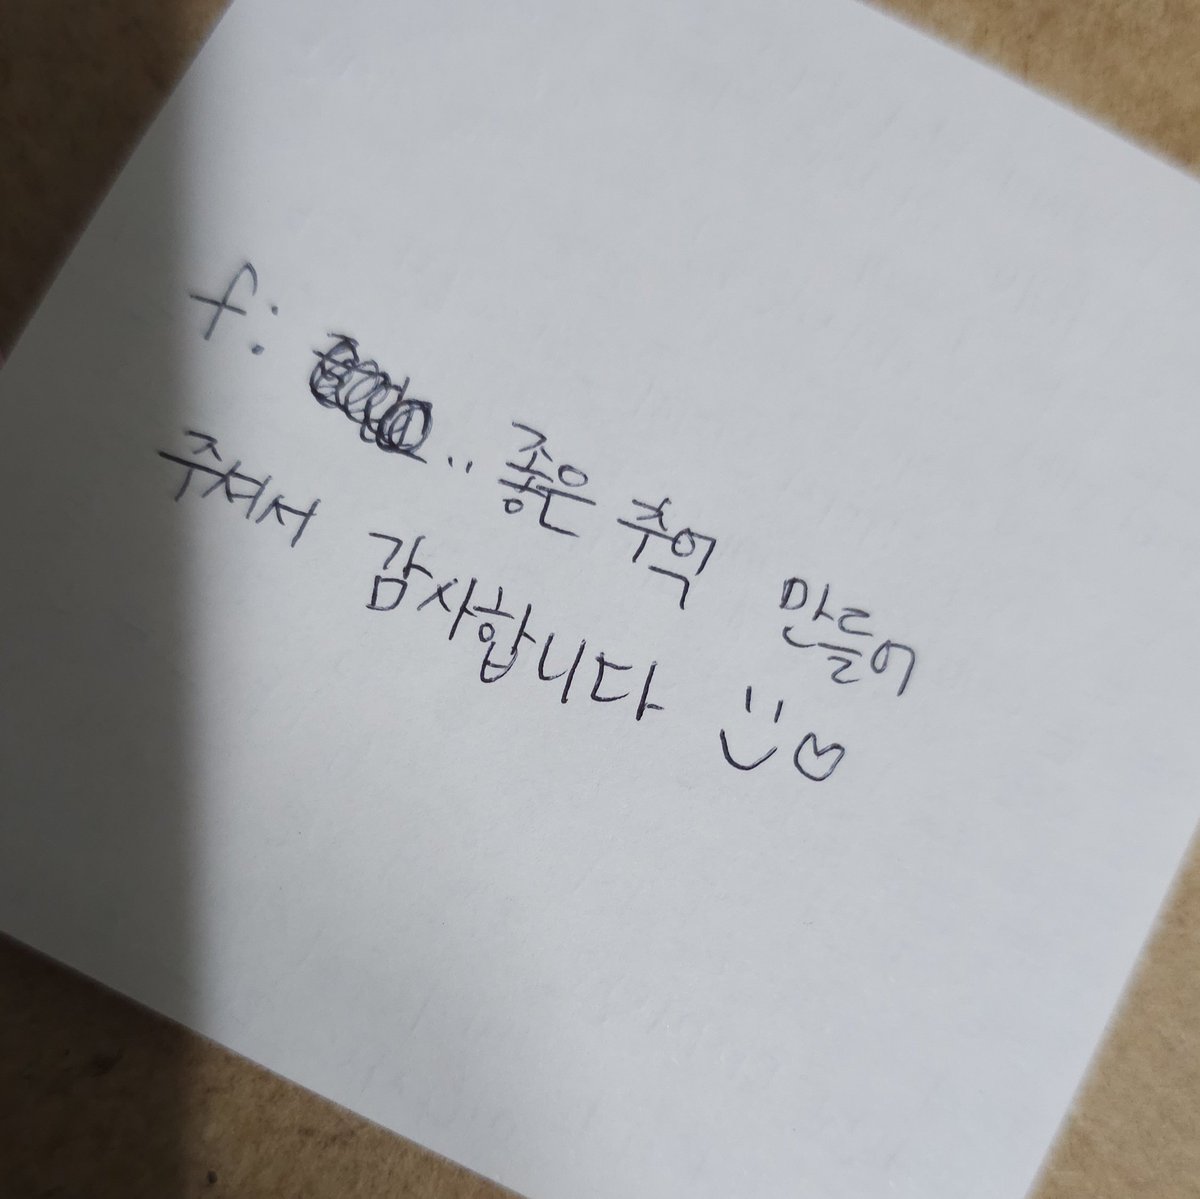 f: .. 좋은 추억 만들어
주셔서 감사합니다